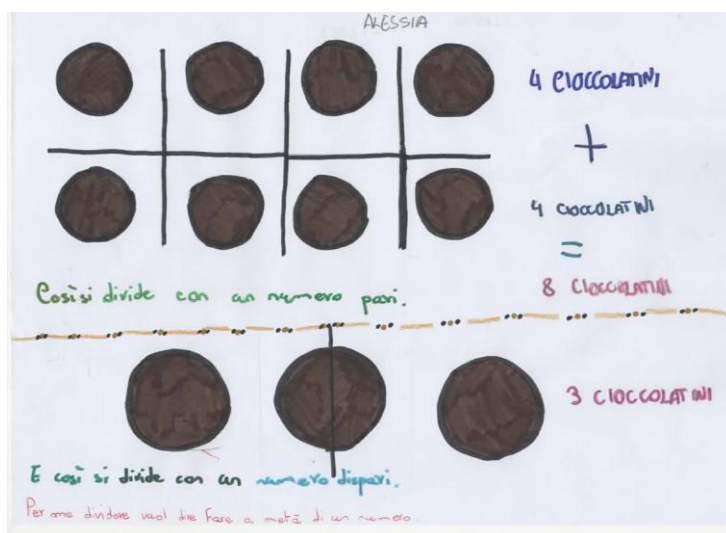 ALESSIA
4 CIOCCOLATINI
+
4 CIOCCOLATINI
=
8 CIOCCOLATINI
Così si divide con un numero pari.
3 CIOCCOLATINI
E così si divide con un numero dispari.
Per me dividere vuol dire fare a metà di un numero.